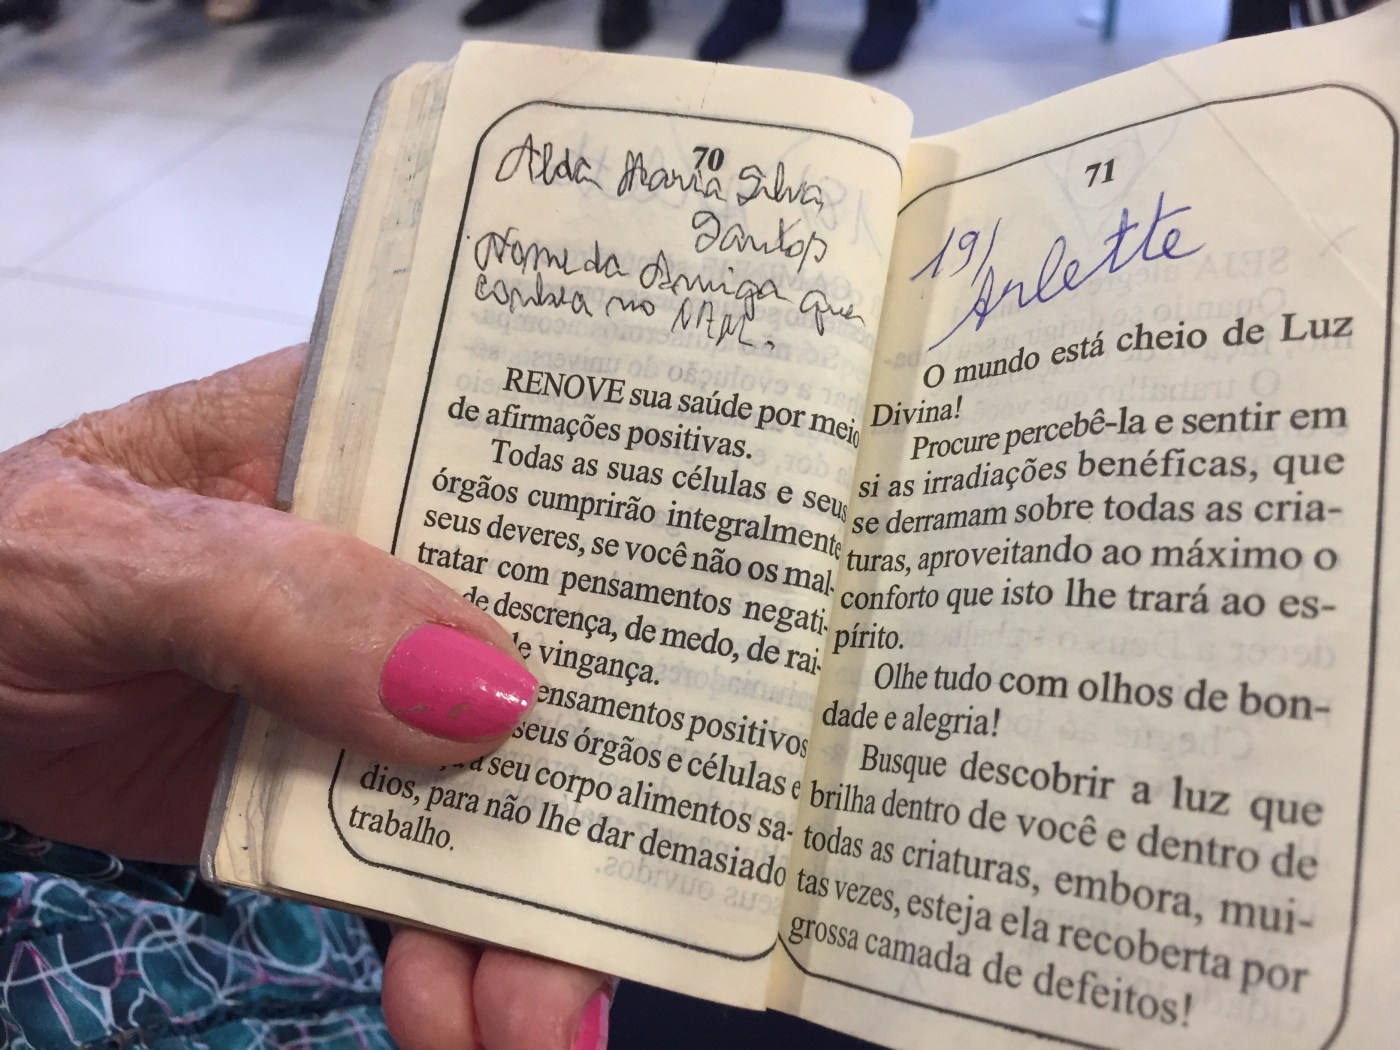 70
Alda Maria Silva,
Santos
Nome da Amiga que
conhea no
RENOVE sua saúde por meio
de afirmações positivas.
Todas as suas células e seus
órgãos cumprirão integralmente
seus deveres, se você não os mal-
tratar com pensamentos negati-
de descrença, de medo, de rai-
vingança.
ensamentos positivos
seus órgãos e células e
a seu corpo alimentos sa-
dios, para não lhe dar demasiado
trabalho.
71
19/
Arlette
O mundo está cheio de Luz
Divina!
Procure percebê-la e sentir em
si as irradiações benéficas, que
se derramam sobre todas as cria-
turas, aproveitando ao máximo o
conforto que isto lhe trará ao es-
pírito.
Olhe tudo com olhos de bon-
dade e alegria!
Busque descobrir a luz que
brilha dentro de você e dentro de
todas as criaturas, embora, mui-
tas vezes, esteja ela recoberta por
grossa camada de defeitos!